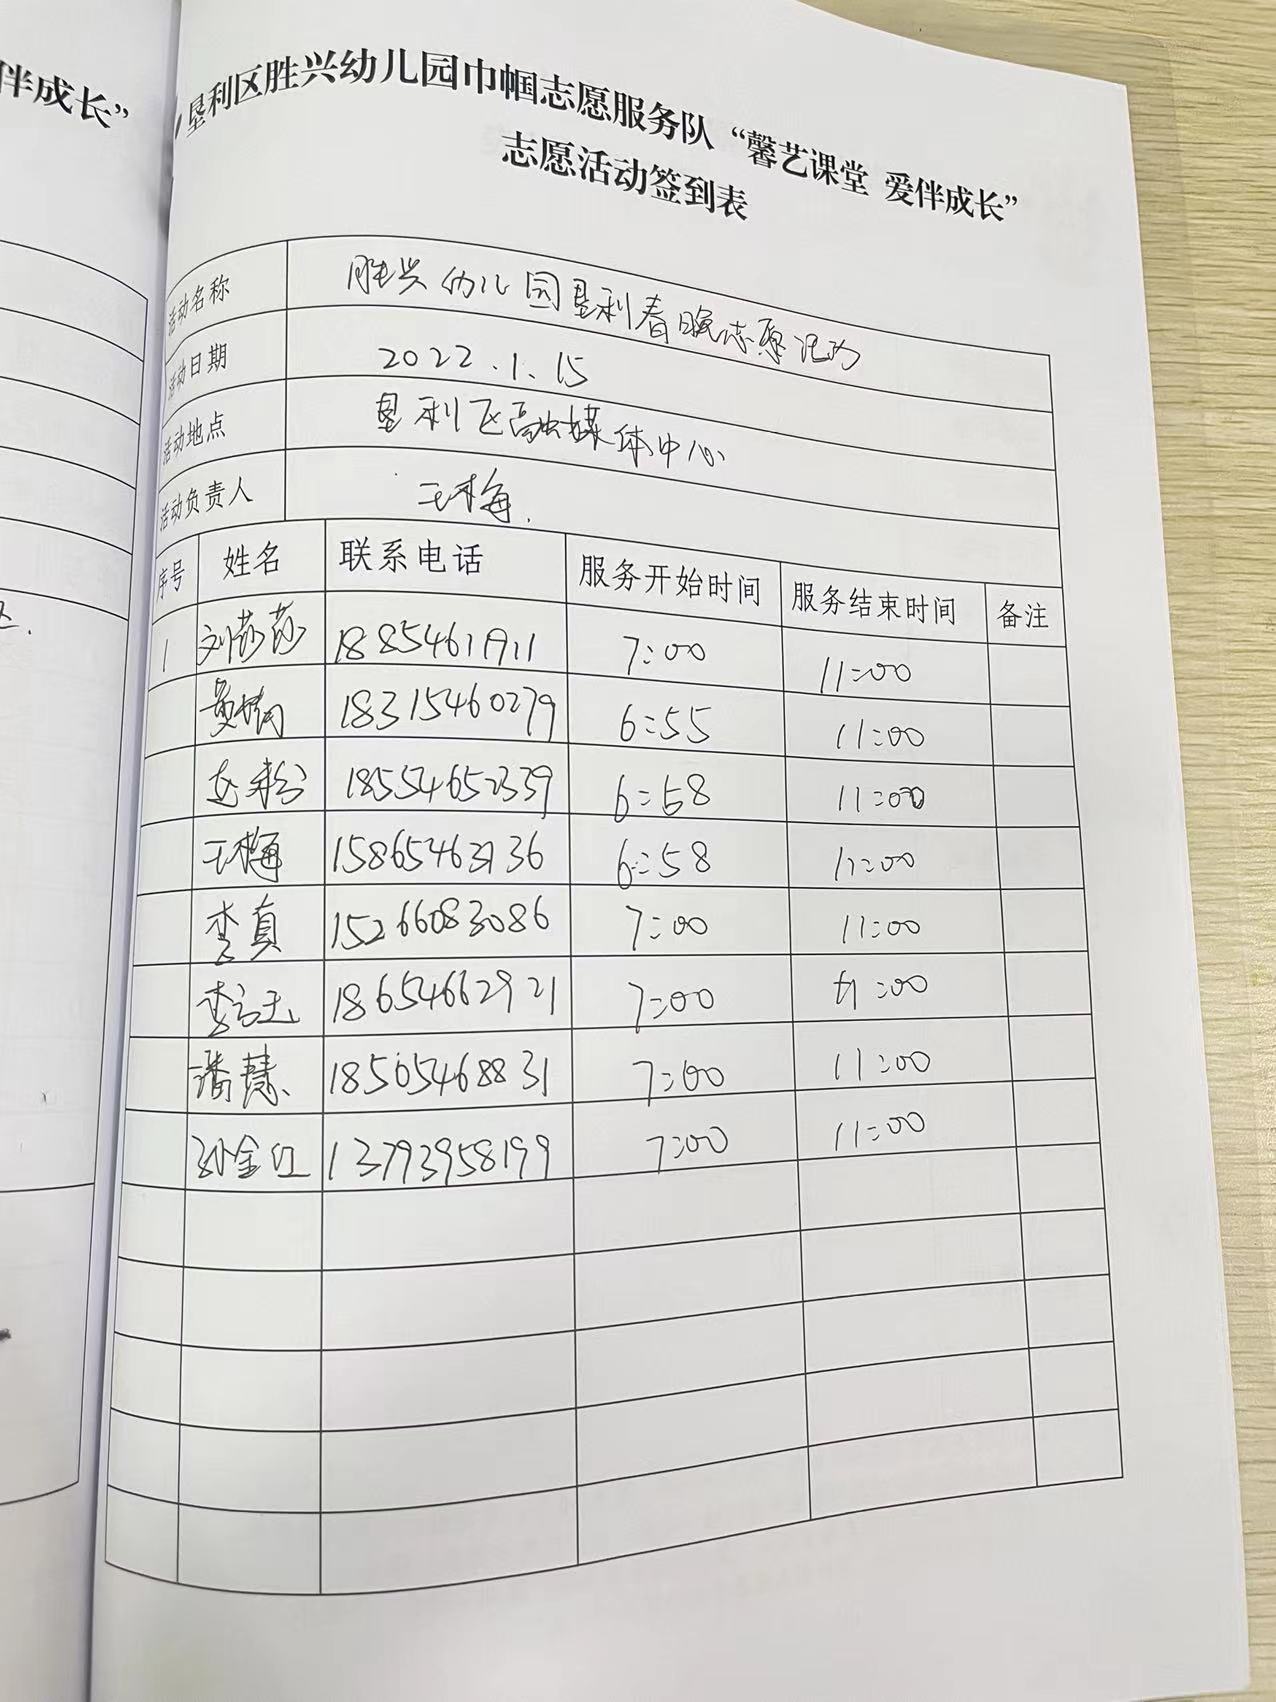 伴成长”
垦利区胜兴幼儿园巾帼志愿服务队“馨艺课堂 爱伴成长”
志愿活动签到表
活动名称 胜兴幼儿园垦利春晚志愿活动
活动日期 2022.1.15
活动地点 垦利区融媒体中心
活动负责人 王梅
序号 姓名 联系电话 服务开始时间 服务结束时间 备注
1 刘莎莎 18854611911 7:00 11:00
18315460279 6:55 11:00
18554652339 6:58 11:00
王梅 15865463736 6:58 11:00
李真 15266083086 7:00 11:00
18654662921 7:00 11:00
潘慧 18505468831 7:00 11:00
孙金红 13793958199 7:00 11:00